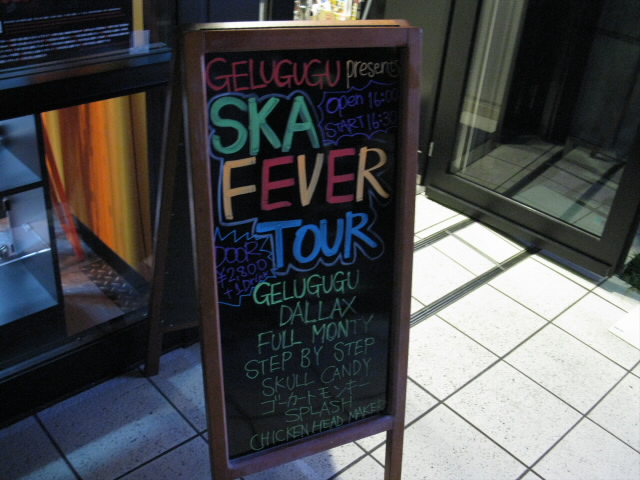 GELUGUGU presents
Open 16:00
START 16:30
SKA
FEVER
TOUR
DOOR
¥2800
GELUGUGU
DALLAX
FULL MONTY
STEP BY STEP
SKULL CANDY
ゴーカートモンキー
SPLASH
CHICKEN HEAD MAKER